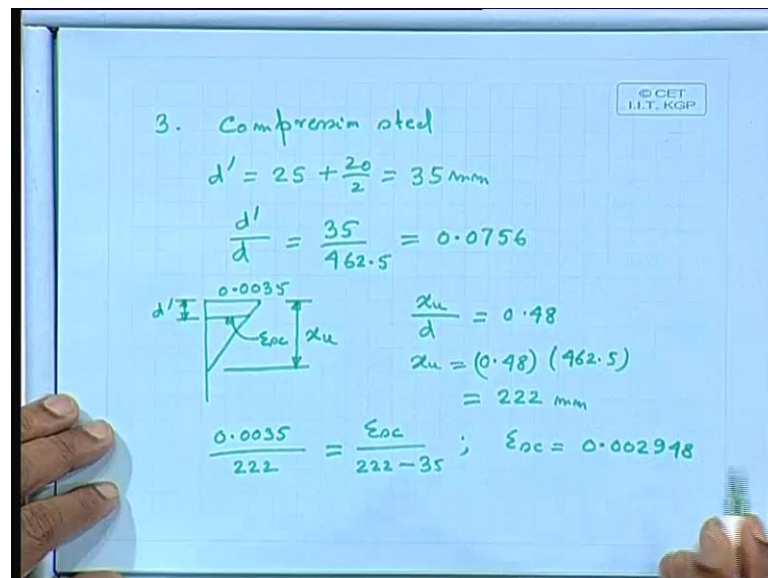 © CET
I.I.T. KGP
3. Compression steel
d' = 25 + 20/2 = 35 mm
d'/d = 35/462.5 = 0.0756
0.0035
d'
εsc
xu
xu/d = 0.48
xu = (0.48) (462.5)
= 222 mm
0.0035/222 = εsc/222-35 ; εsc = 0.002948